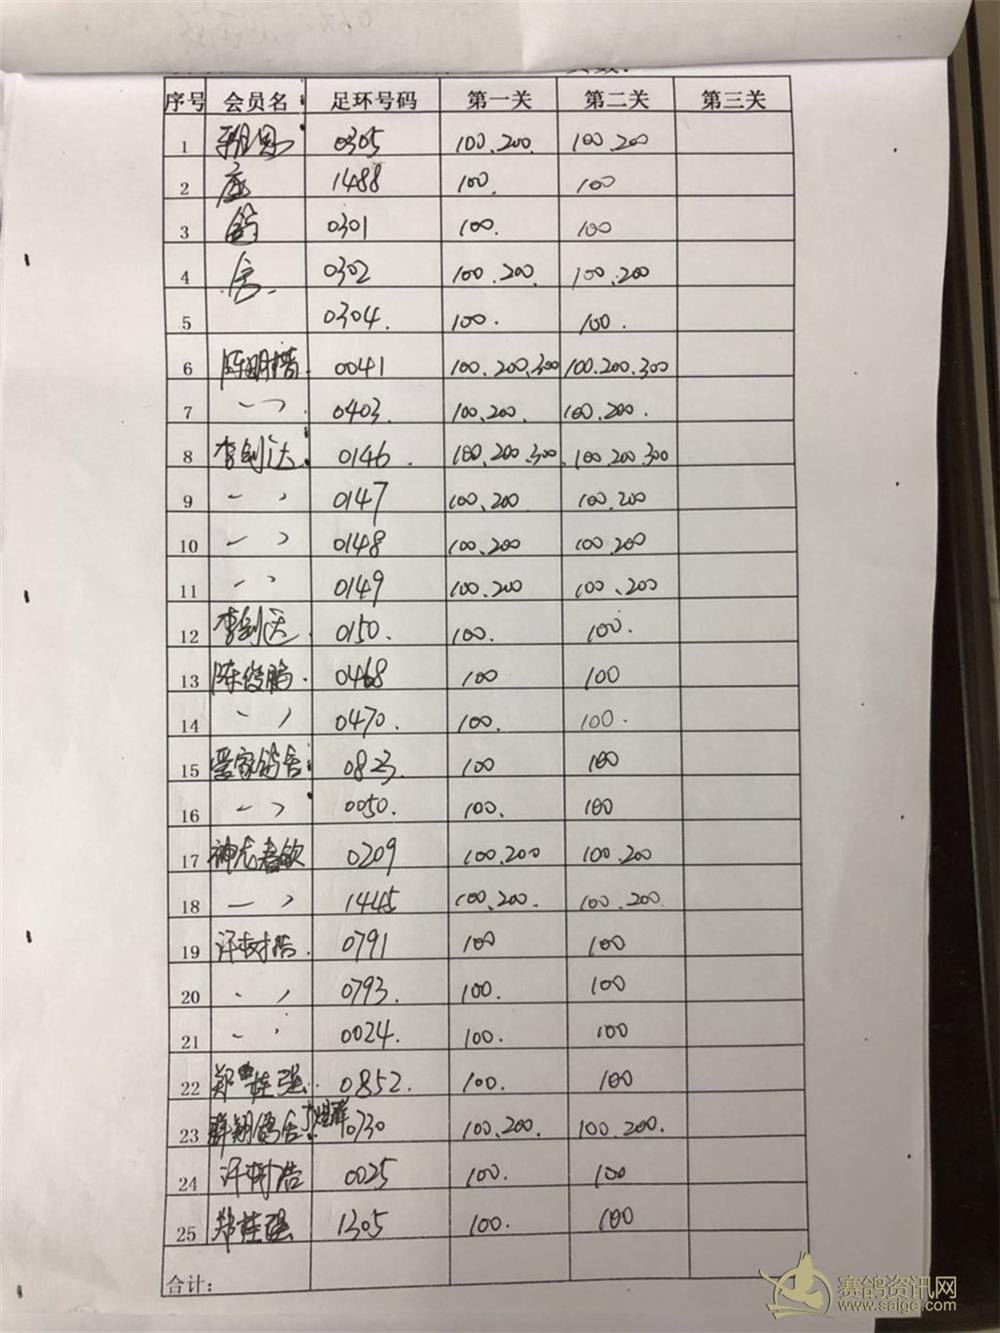 序号 会员名 足环号码 第一关 第二关 第三关
1 0305 100.200. 100.200
2 1488 100. 100
3 鸽 0301 100. 100
4 舍. 0302 100.200. 100.200
5 0304. 100. 100.
6 陈明楷. 0041 100.200.300 100.200.300
7 0403. 100.200. 100.200.
8 李剑达. 0146. 100.200.300. 100.200.300
9 0147 100.200 100.200
10 0148 100.200 100.200
11 0149 100.200 100.200
12 李剑达. 0150. 100. 100.
13 陈俊鹏. 0468 100 100
14 0470. 100. 100.
15 爱家鸽舍 0823. 100 100
16 0050. 100. 100
17 神龙春钦 0209 100.200 100.200
18 1445 100.200. 100.200.
19 许树浩. 0791 100 100
20 0793. 100. 100
21 0024. 100. 100
22 郑桂强. 0852. 100. 100
23 群翔鸽舍 0730 100.200. 100.200.
24 许树浩 0025 100. 100
25 郑桂强 1305 100. 100
合计：
赛鸽资讯网
www.saige.com